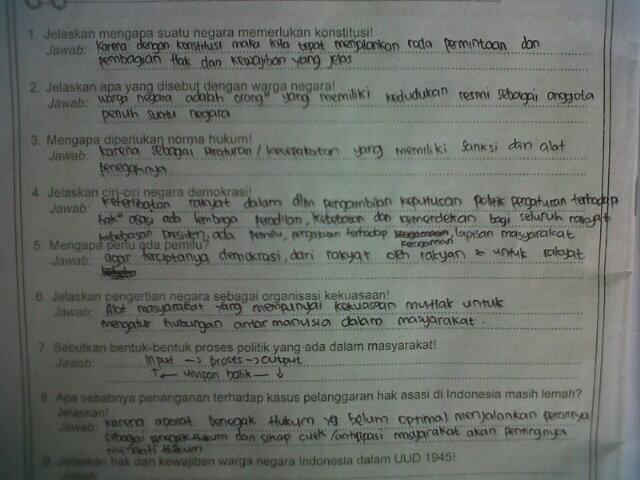 1. Jelaskan mengapa suatu negara memerlukan konstitusi!
Jawab: karena dengan konstitusi maka kita dapat menjalankan roda permintaan dan
pembagian Hak dan kewajiban yang jelas
2. Jelaskan apa yang disebut dengan warga negara!
Jawab: warga negara adalah orang² yang memiliki kedudukan resmi sebagai anggota
penuh suatu negara
3. Mengapa diperlukan norma hukum!
Jawab: karena sebagai peraturan / kesepakatan yang memiliki sanksi dan alat
penegaknya
4. Jelaskan ciri-ciri negara demokrasi!
Jawab: keterlibatan rakyat dalam dlm pengambilan keputusan politik pengaturan terhadap
hak² asasi ada lembaga peradilan, kebebasan dan kemerdekan bagi seluruh rakyat
kebebasan presiden, ada pemilu, pengakuan terhadap keragaman, lapisan masyarakat
5. Mengapa perlu ada pemilu?
Jawab: agar terciptanya demokrasi, dari rakyat oleh rakyan untuk rakyat
6. Jelaskan pengertian negara sebagai organisasi kekuasaan!
Jawab: Alat masyarakat yang mempunyai kekuasaan mutlak untuk
mengatur hubungan antar manusia dalam masyarakat.
7. Sebutkan bentuk-bentuk proses politik yang ada dalam masyarakat!
Jawab: Input → proses → output
↑ ← umpan balik — ↓
8. Apa sebabnya penanganan terhadap kasus pelanggaran hak asasi di Indonesia masih lemah?
Jelaskan!
Jawab: karena aparat penegak Hukum yg belum optimal menjalankan perannya
sebagai penegak Hukum dan sikap cuek /antisipasi masyarakat akan pentingnya
mentaati Hukum
9. Jelaskan hak dan kewajiban warga negara Indonesia dalam UUD 1945!
Jawab: